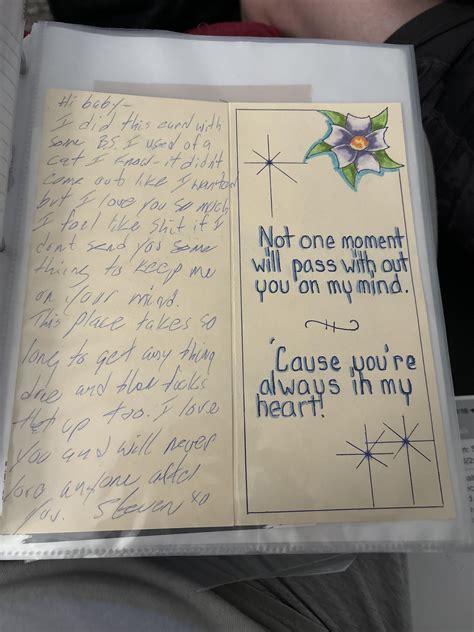 Hi baby-
I did this card with
some BS. I used of a
cat I know - it didnt
come out like I wanted
but I love you so much
I feel like shit if I
dont send you some
thing to keep me
on your mind.
This place takes so
long to get any thing
done and then fucks
that up too. I love
you and will never
love anyone after
you. Steven xo
Not one moment
will pass with out
you on my mind.
'Cause you're
always in my
heart!